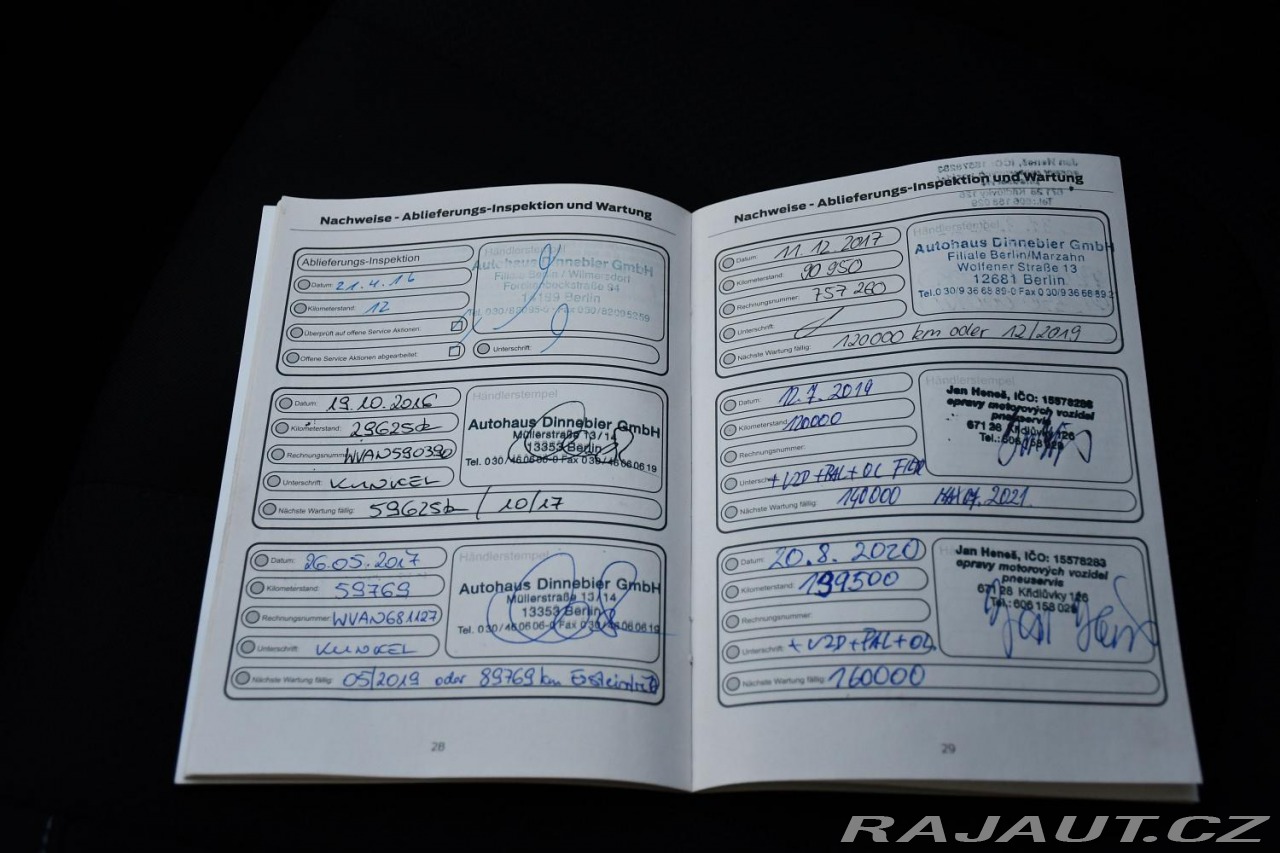 Nachweise - Ablieferungs-Inspektion und Wartung
Ablieferungs-Inspektion
Datum: 21.4.16
Kilometerstand: 12
Überprüft auf offene Service Aktionen:
Offene Service Aktionen abgearbeitet:
Händlerstempel
Autohaus Dinnebier GmbH
Filiale Berlin / Wilmersdorf
14199 Berlin
Unterschrift:
Datum: 19.10.2016
Kilometerstand: 29625
Rechnungsnummer: WVAN590390
Unterschrift: KUNKEL
Nächste Wartung fällig: 59625 / 10/17
Händlerstempel
Autohaus Dinnebier GmbH
Müllerstraße 13/14
13353 Berlin
Tel. 030/46 06 06-0 Fax 030/46 06 06 19
Datum: 26.05.2017
Kilometerstand: 59769
Rechnungsnummer: WVAN681127
Unterschrift: KUNKEL
Nächste Wartung fällig: 05/2019 oder 89769 km
Händlerstempel
Autohaus Dinnebier GmbH
Müllerstraße 13/14
13353 Berlin
Tel. 030/46 06 06-0 Fax 030/46 06 06 19
28
Nachweise - Ablieferungs-Inspektion und Wartung
Datum: 11.12.2017
Kilometerstand: 90950
Rechnungsnummer: 757260
Unterschrift:
Nächste Wartung fällig: 120000 km oder 12/2019
Händlerstempel
Autohaus Dinnebier GmbH
Filiale Berlin/Marzahn
Wolfener Straße 13
12681 Berlin
Tel. 0 30/9 36 65 89-0 Fax 0 30/9 36 66 89 2
Datum: 12.7.2019
Kilometerstand: 120000
Rechnungsnummer:
Unterschrift: + VZD + PAL + OL FILTR
Nächste Wartung fällig: 140000 07.2021
Händlerstempel
Jan Heneš, IČO: 15578283
opravy motorových vozidel
pneuservis
671 28 Křídlůvky 126
Tel.: 606 158 029
Datum: 20.8.2020
Kilometerstand: 139500
Rechnungsnummer:
Unterschrift: + VZD + PAL + OL
Nächste Wartung fällig: 160000
Jan Heneš, IČO: 15578283
opravy motorových vozidel
pneuservis
671 28 Křídlůvky 126
Tel.: 606 158 029
29
RAJAUT.CZ